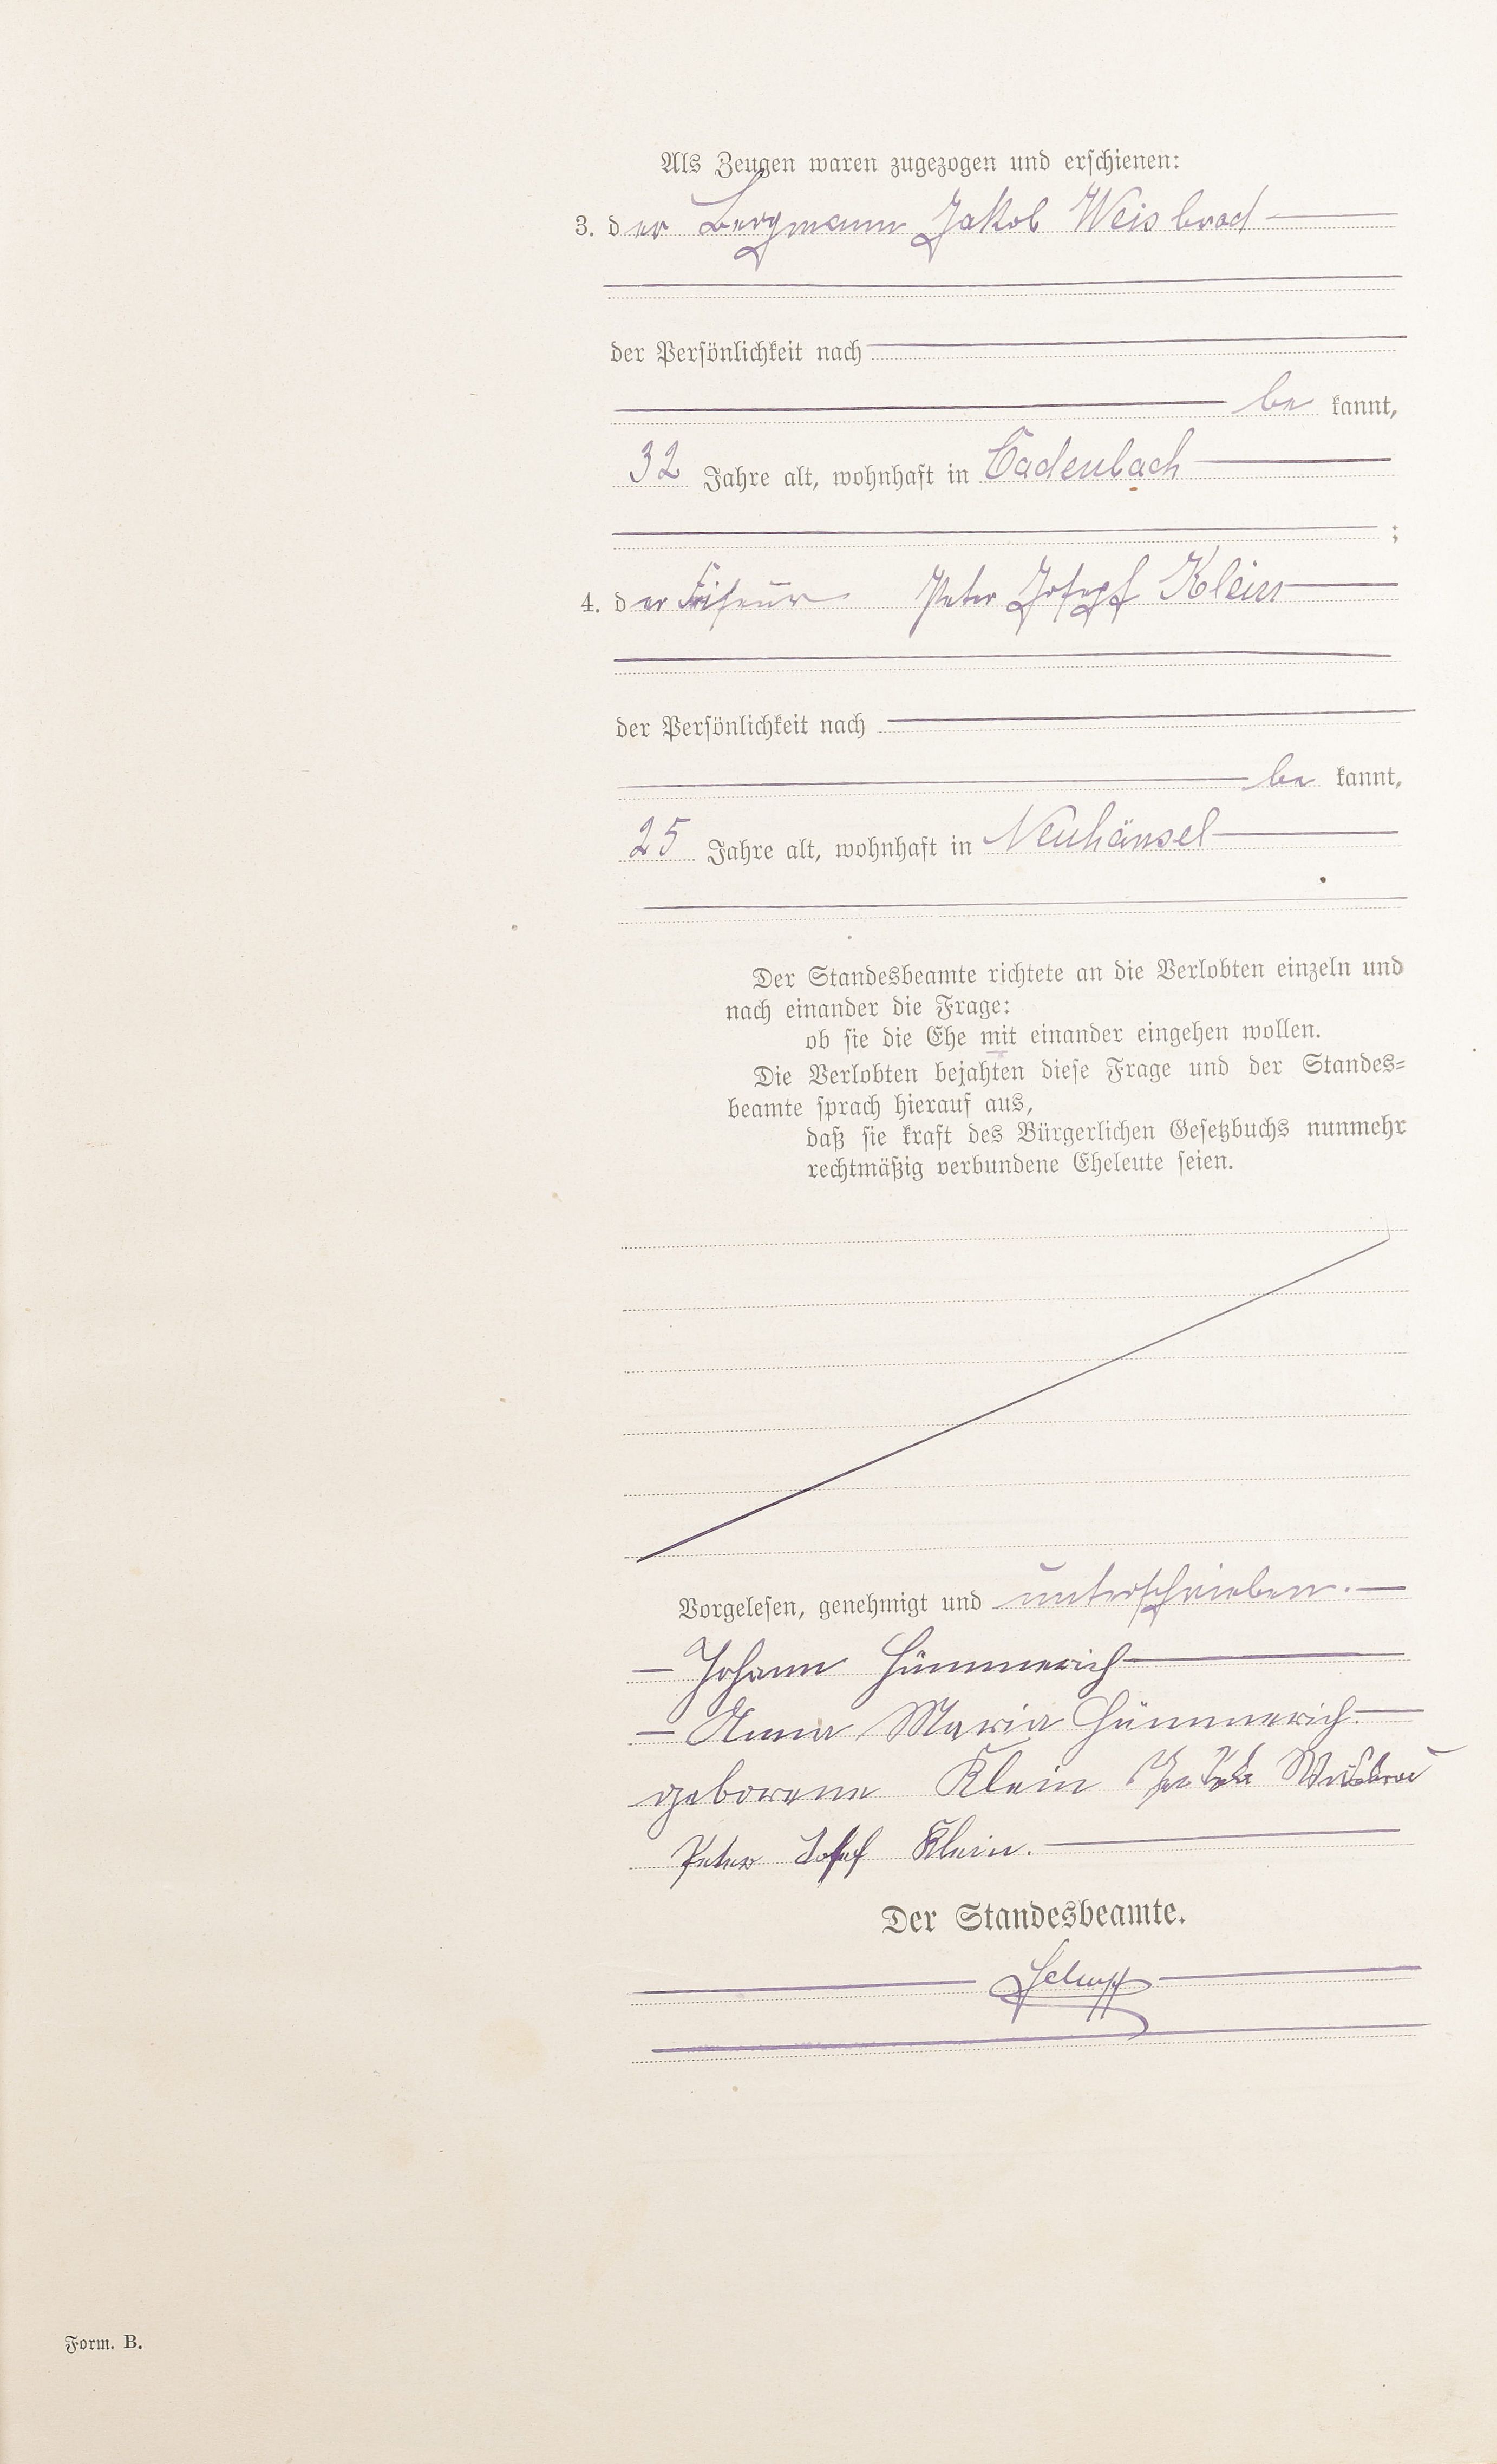 Als Zeugen waren zugezogen und erschienen:
3. der Bergmann Jakob Weisbrod
der Persönlichkeit nach
be kannt,
32 Jahre alt, wohnhaft in Cadenbach
;
4. der Friseur Peter Josef Klein
der Persönlichkeit nach
be kannt,
25 Jahre alt, wohnhaft in Neuhäusel
Der Standesbeamte richtete an die Verlobten einzeln und
nach einander die Frage:
ob sie die Ehe mit einander eingehen wollen.
Die Verlobten bejahten diese Frage und der Standes=
beamte sprach hierauf aus,
daß sie kraft des Bürgerlichen Gesetzbuchs nunmehr
rechtmäßig verbundene Eheleute seien.
Vorgelesen, genehmigt und unterschrieben.
Johann Hümmerich
Anna Maria Hümmerich
geborene Klein Jakob Weisbrod
Peter Josef Klein.
Der Standesbeamte.
Form. B.